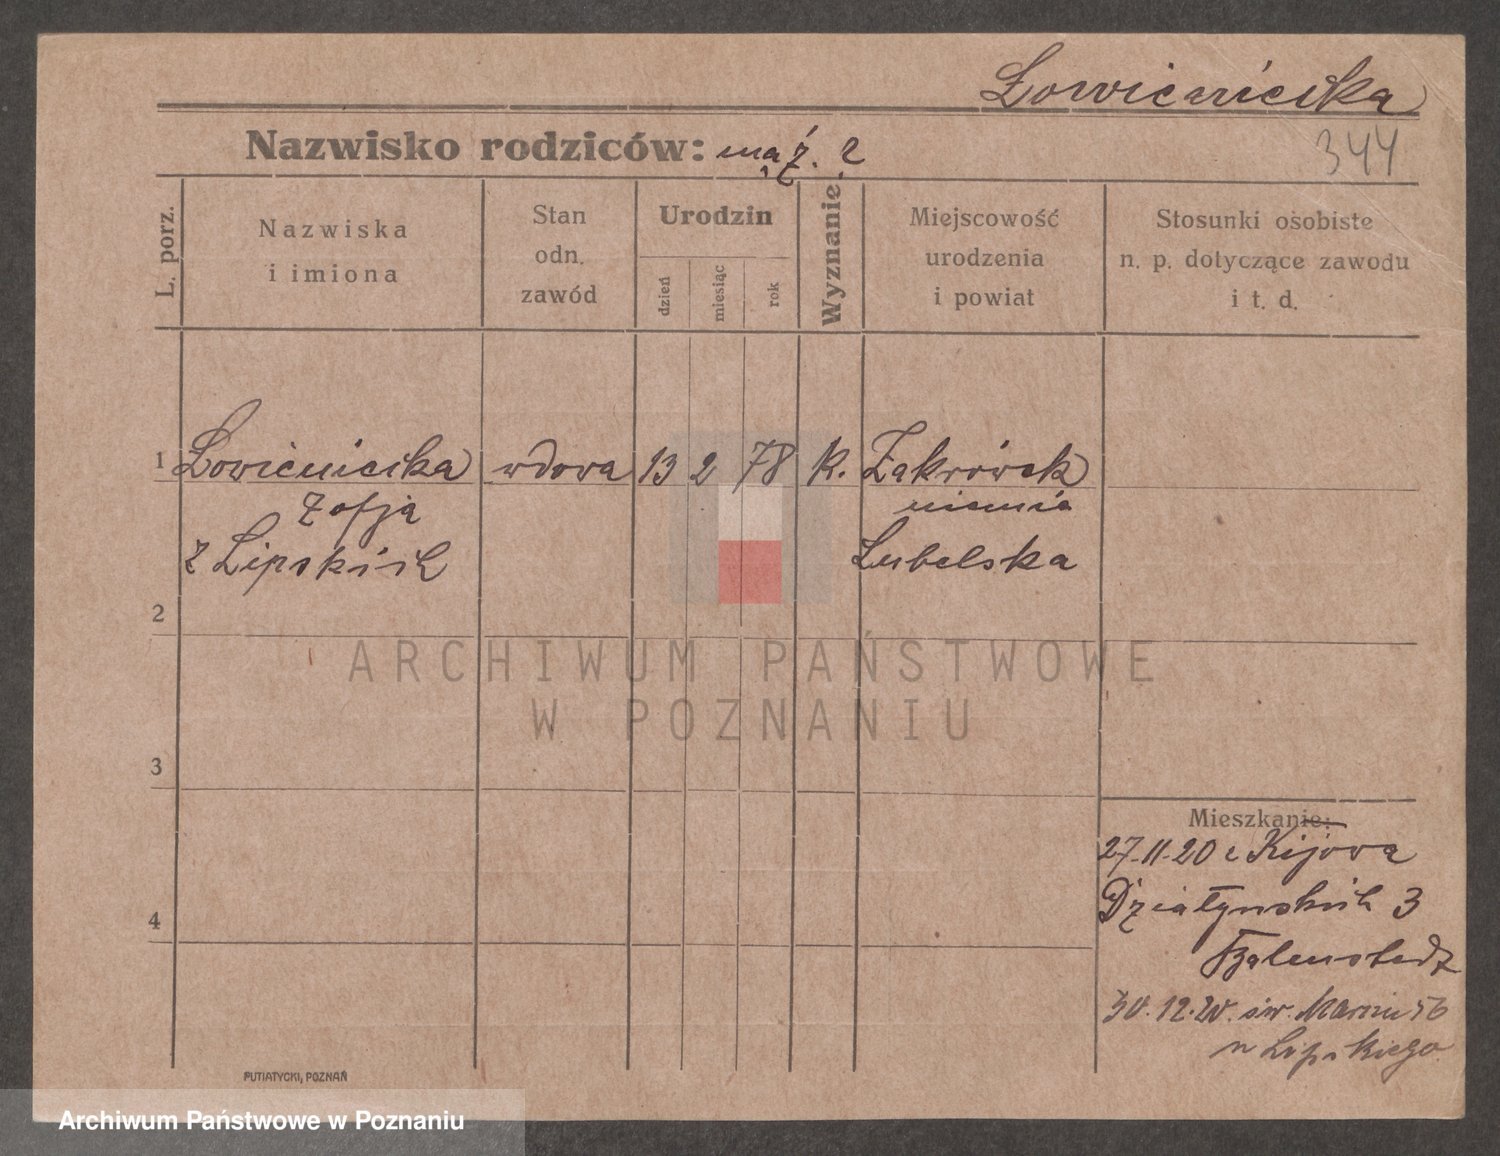 Łowicnicka
Nazwisko rodziców: mąż. 2
344
L. porz.
Nazwiska
i imiona
Stan
odn.
zawód
Urodzin
dzień
miesiąc
rok
Wyznanie
Miejscowość
urodzenia
i powiat
Stosunki osobiste
n. p. dotyczące zawodu
i t. d.
1 Łowicnicka wdowa 13 2 78 K. Zakrówek
Zofja
ziemia
z Lipskich Lubelska
2
3
4
Mieszkanie:
27-11-20 z Kijowa
Działyńskich 3
30.12.20. św. Marcin 56
u Lipskiego
PUTIATYCKI, POZNAŃ
ARCHIWUM PAŃSTWOWE
W POZNANIU
Archiwum Państwowe w Poznaniu